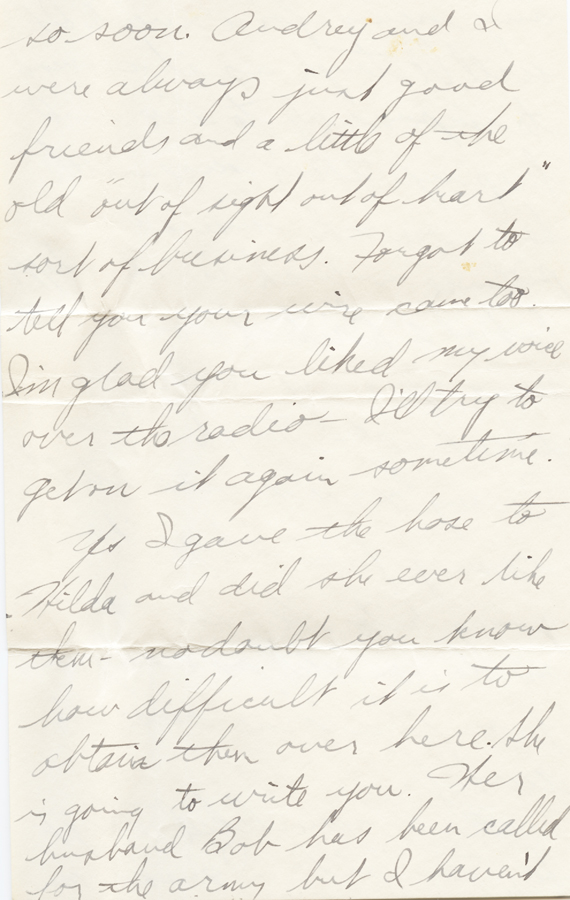 so soon. Audrey and I
were always just good
friends and a little of the
old "out of sight out of heart"
sort of business. Forgot to
tell you your wire came too.
I'm glad you liked my voice
over the radio - I'll try to
get on it again sometime.
Yes I gave the hose to
Hilda and did she ever like
them - no doubt you know
how difficult it is to
obtain them over here. She
is going to write you. Her
husband Bob has been called
for the army but I haven't